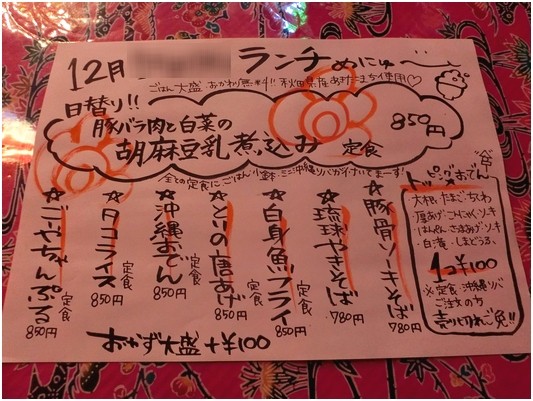 12月 ランチめにゅ～
ごはん大盛 おかわり無料!! 秋田県産あきたこまち使用♡
日替り!!
豚バラ肉と白菜の
胡麻豆乳煮込み 定食 850円
全ての定食にごはん・小鉢・ミニ沖縄ソバがついてまーす!
☆豚骨ソーキそば 780円
☆琉球やきそば 780円
☆白身魚フライ 定食 850円
☆とりの唐あげ 定食 850円
☆沖縄おでん 定食 850円
☆タコライス 定食 850円
☆ごーやちゃんぷる 定食 850円
おかず大盛 +¥100
トッピングおでん
大根・たまご・ちくわ
厚あげ・こんにゃく・ソーキ
はんぺん・さつまあげ・
白滝・しまどうふ、
1コ¥100
※定食・沖縄ソバ
ご注文のち
売り切れご免!!